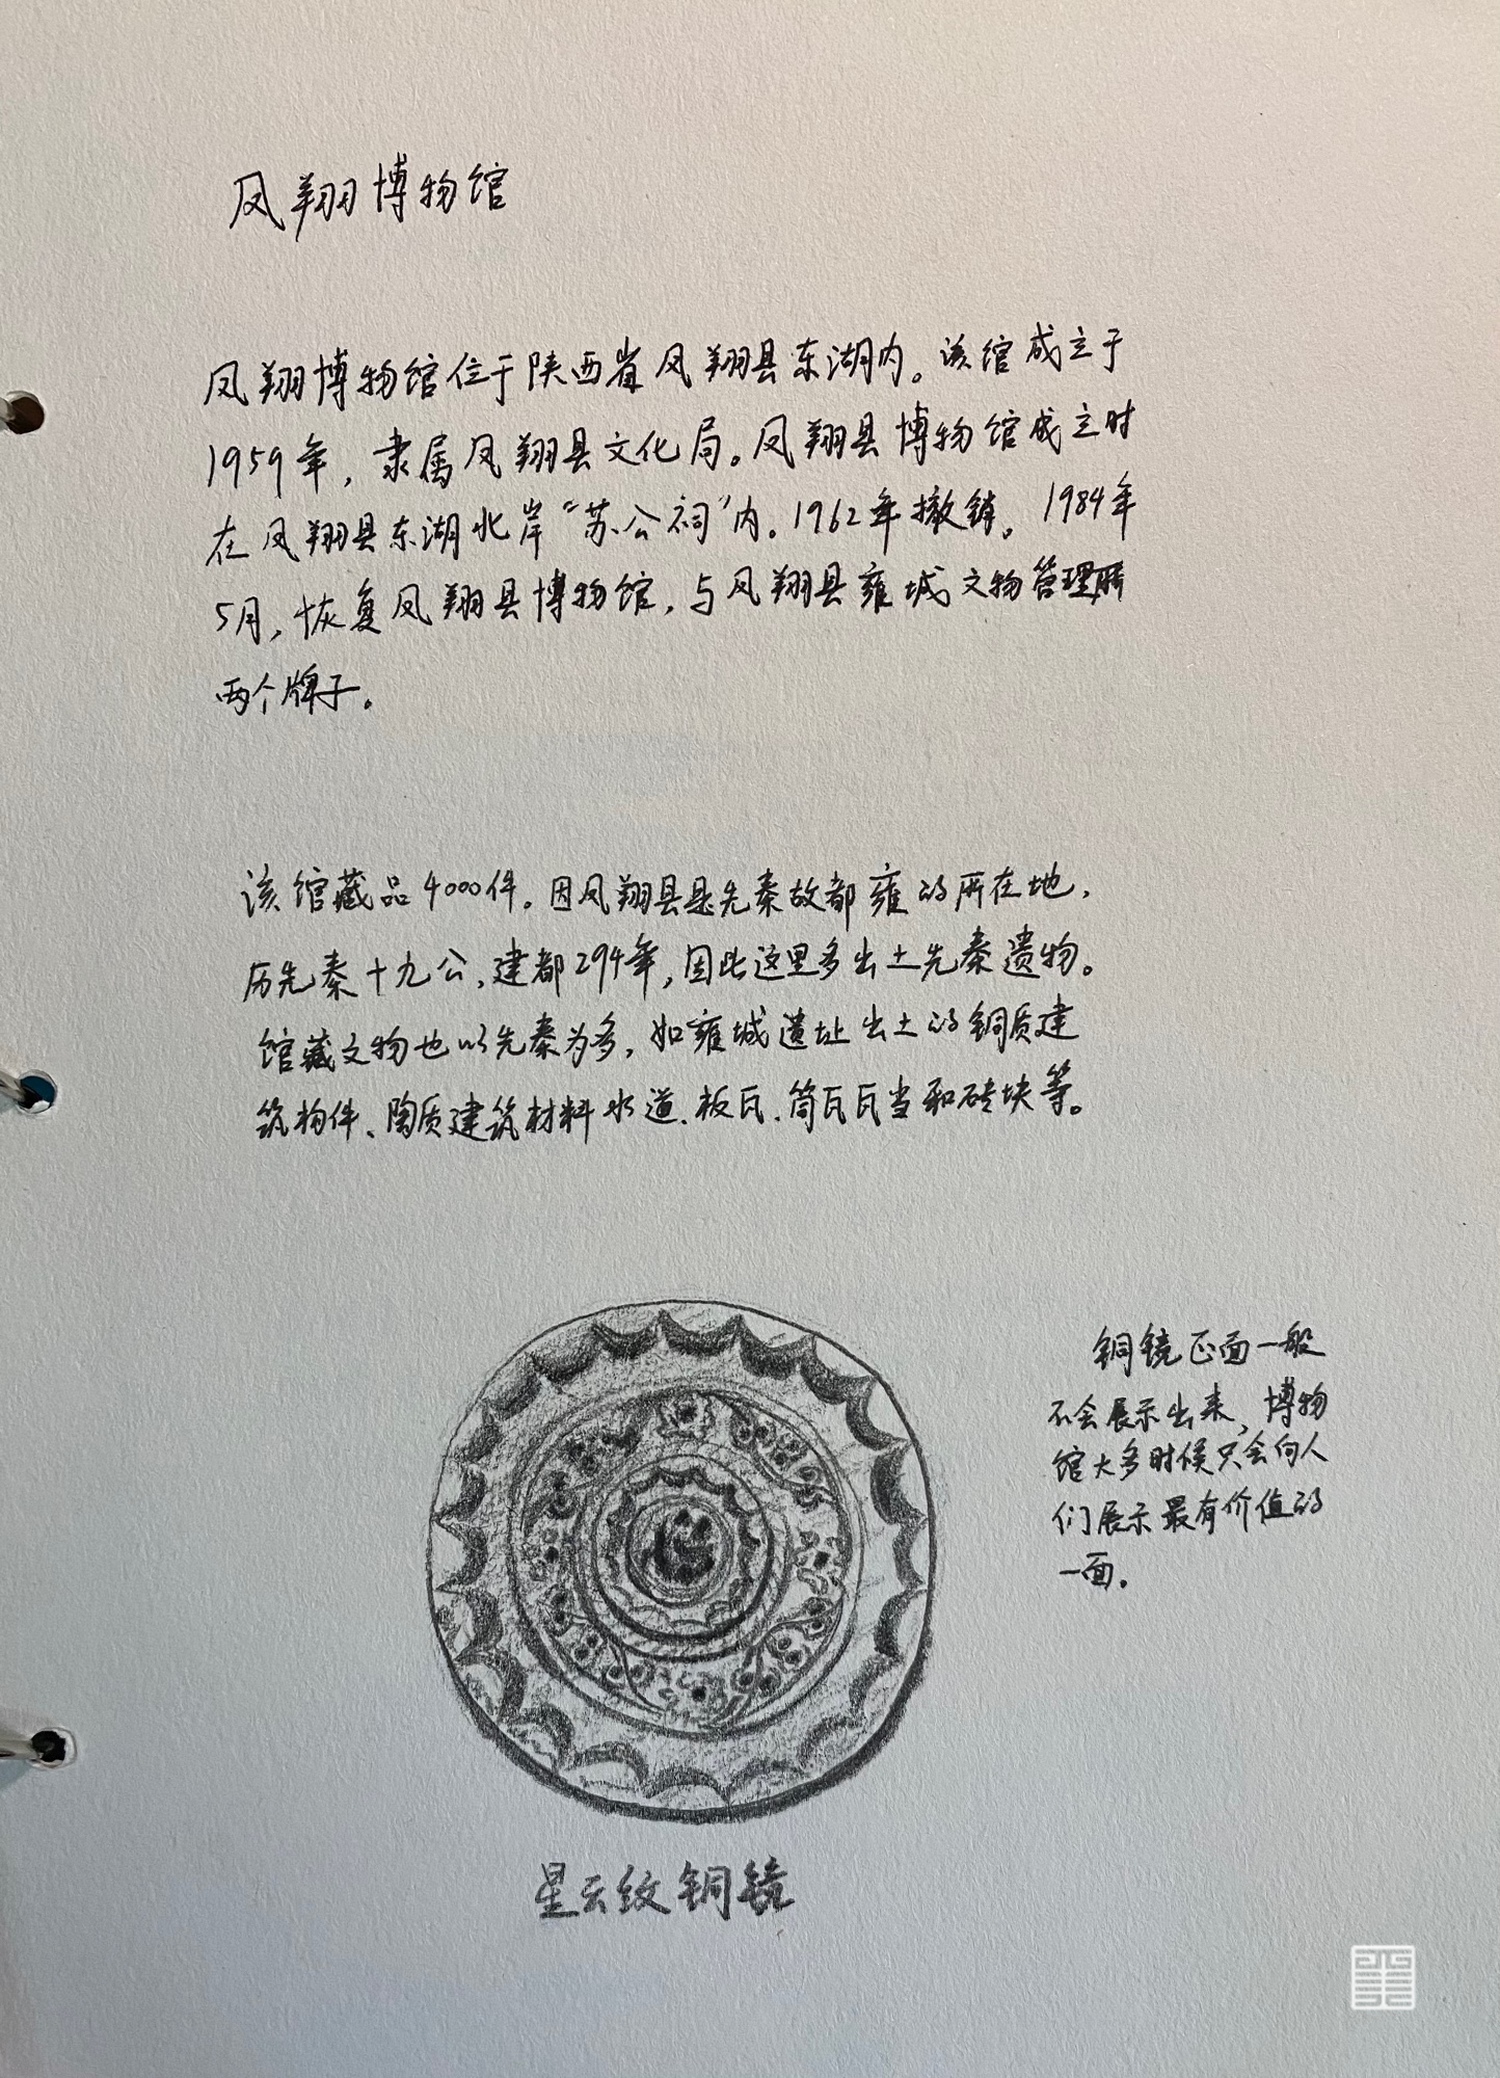 凤翔博物馆
凤翔博物馆位于陕西省凤翔县东湖内。该馆成立于
1959年，隶属凤翔县文化局。凤翔县博物馆成立时
在凤翔县东湖北岸“苏公祠”内。1962年撤销。1984年
5月，恢复凤翔县博物馆，与凤翔县雍城文物管理所
两个牌子。
该馆藏品4000件。因凤翔县是先秦故都雍的所在地，
历先秦十九公，建都294年，因此这里多出土先秦遗物。
馆藏文物也以先秦为多，如雍城遗址出土的铜质建
筑构件、陶质建筑材料水道、板瓦、筒瓦瓦当和砖块等。
铜镜正面一般
不会展示出来，博物
馆大多时候只会向人
们展示最有价值的
一面。
星云纹铜镜